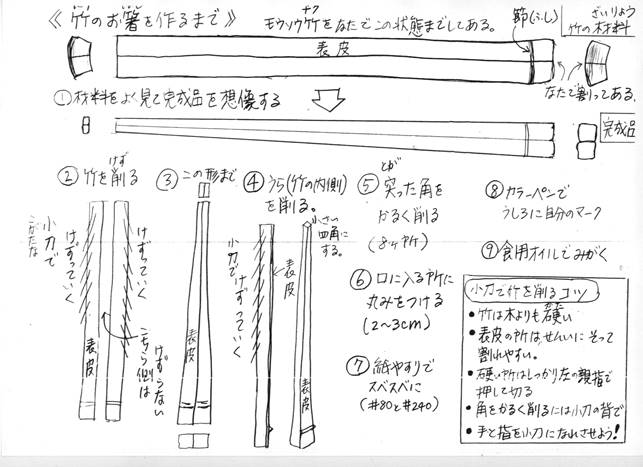 《竹のお箸を作るまで》
モウソウ竹をナタでこの状態までしてある。
節(ふし)
ざいりょう
竹の材料
表皮
なたで割ってある。
①材料をよく見て完成品を想像する
完成品
②竹を削る
けず
小刀で
こがたな
けずっていく
けずっていく
こちら側は
けずらない
表皮
③この形まで
表皮
④うら(竹の内側)
を削る。
小刀でけずっていく
表皮
小さい
四角に
する。
表皮
⑤突った角を
とが
かるく削る
(8ヶ所)
⑥口に入る所に
丸みをつける
(2～3cm)
⑦紙やすりで
スベスベに
(#80と#240)
⑧カラーペンで
うしろに自分のマーク
⑨食用オイルでみがく
小刀で竹を削るコツ
●竹は木よりも硬い
かた
●表皮の所は、せんいにそって
割れやすい。
●硬い所はしっかり左の親指で
押して切る
●角をかるく削るには小刀の背で
●手と指を小刀になれさせよう!